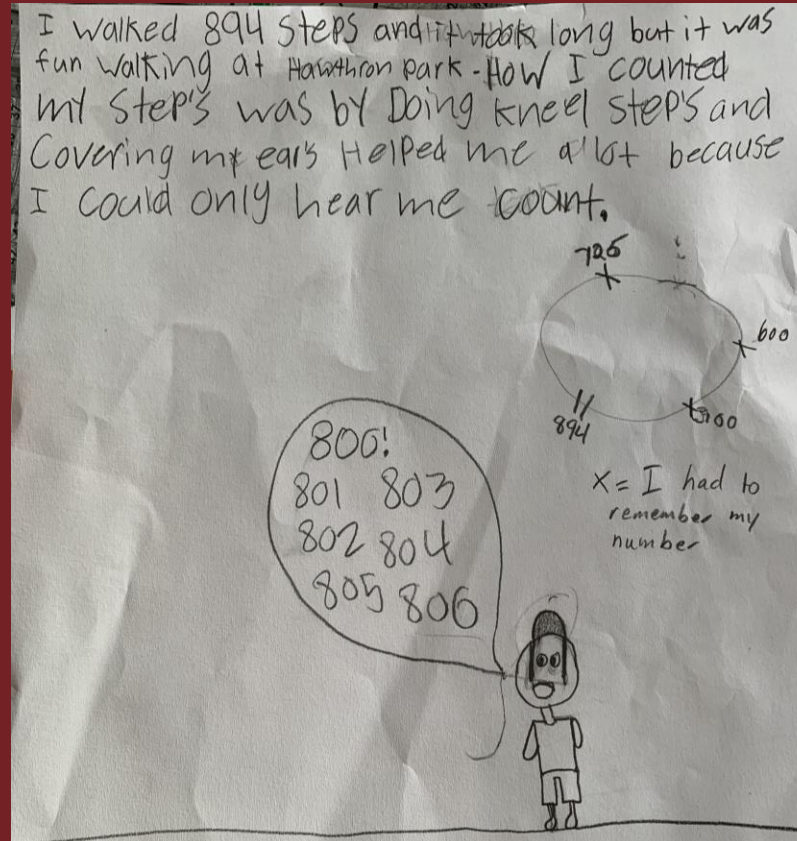 I walked 894 steps and it took long but it was
fun walking at Hawthron park - How I counted
my step's was by Doing kneel step's and
Covering my ears Helped me a lot because
I could only hear me count.
725
600
894
X = I had to
remember my
number
800!
801 803
802 804
805 806